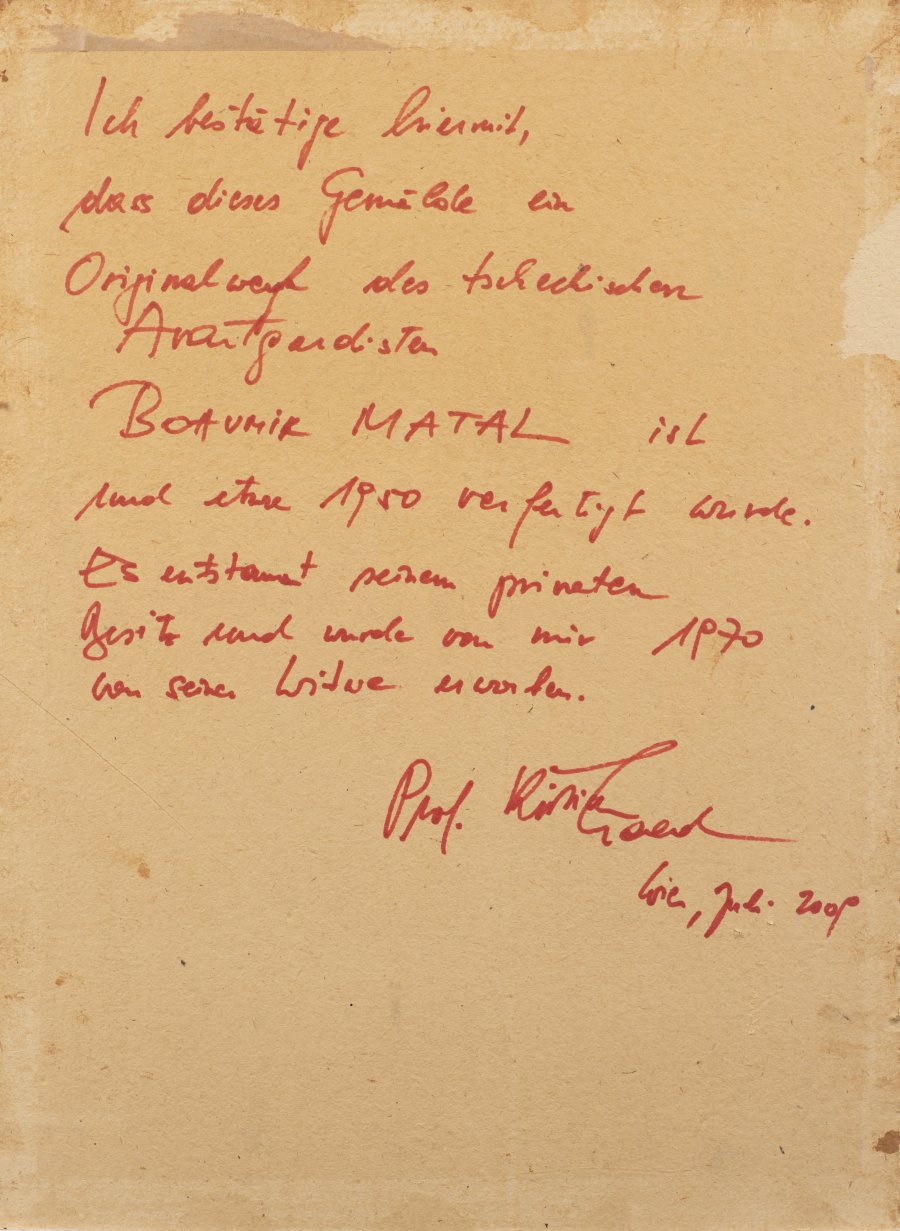 Ich bestätige hiermit,
dass dieses Gemälde ein
Originalwerk des tschechischen
Avantgardisten
BOHUMIR MATAL ist
und etwa 1950 verfertigt wurde.
Es entstamt seinem privaten
Besitz und wurde von mir 1970
von seiner Witwe erworben.
Prof.
Wien, Juli 2009